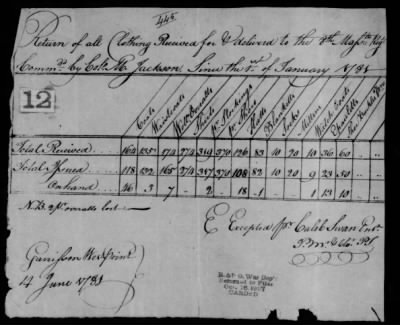 445
Return of all Clothing Received for & delivered to the 8th Massts Regt
Commd by Colo M Jackson, Since the 1st of January 1781
12
Coats
Waistcoats
Woll Overalls
Shirts
pr Stockings
pr Shoes
Hatts
Blanketts
Socks
Mittens
Watch Coats
Total Received 164 135 174 274 389 370 126 83 10 20 10 36 60
Total Issued 118 132 165 274 387 370 108 82 10 20 9 23 50
On hand 46 3 7 2 18 1 1 13 10
N.B. 2 pr overalls lost
E Excepted Pr Caleb Swan Ensn
P. Mr & Clo. 8
Garrison West point
14 June 1781
R. & P. O. War Dep't
Returned to Files
Oct. 16 1907
CARDED